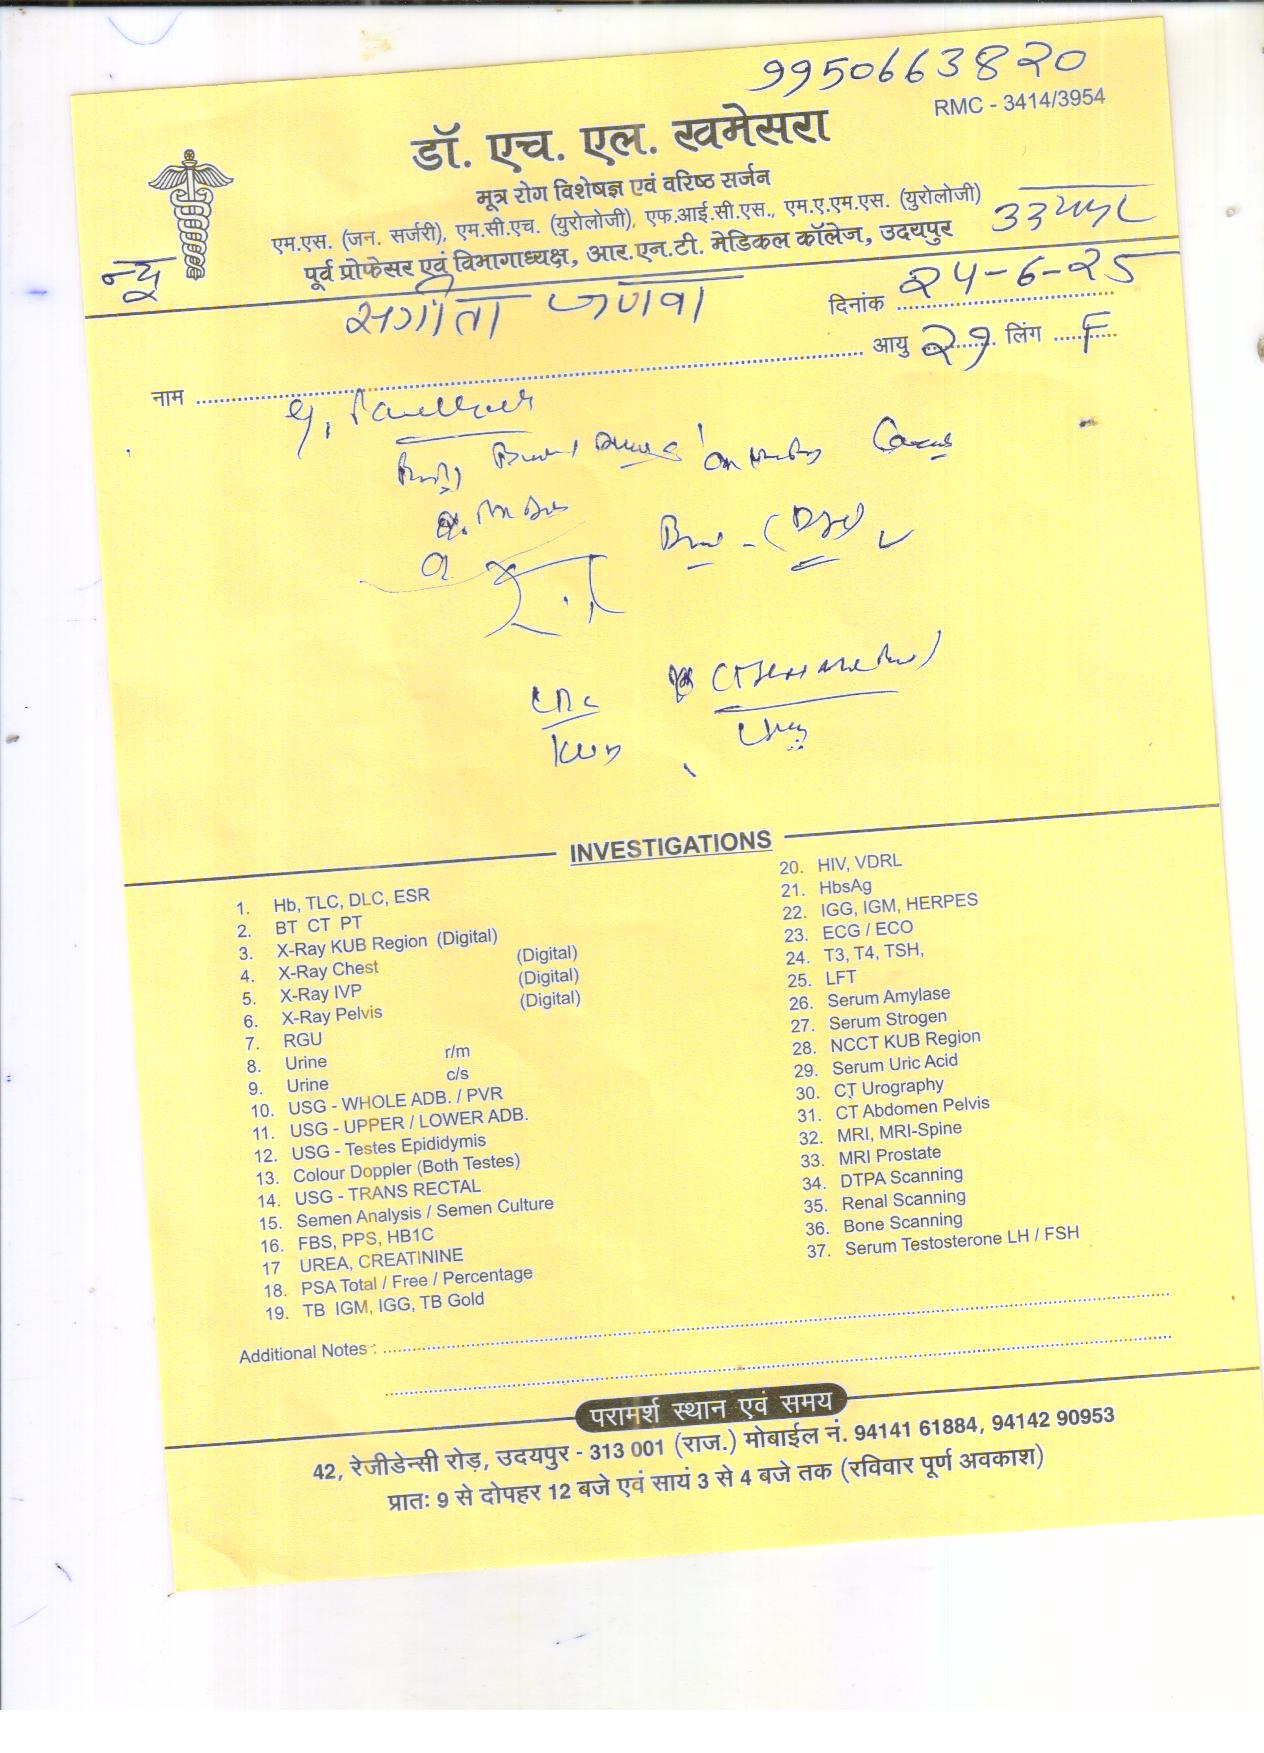 9950663820
RMC - 3414/3954
डॉ. एच. एल. खमेसरा
मूत्र रोग विशेषज्ञ एवं वरिष्ठ सर्जन
एम.एस. (जन. सर्जरी), एम.सी.एच. (युरोलोजी), एफ.आई.सी.एस., एम.ए.एम.एस. (युरोलोजी)
पूर्व प्रोफेसर एवं विभागाध्यक्ष, आर.एन.टी. मेडिकल कॉलेज, उदयपुर
उदयपुर
न्यू
दिनांक २५-6-२5
आयु लिंग F
नाम
INVESTIGATIONS
1. Hb, TLC, DLC, ESR
2. BT CT PT
3. X-Ray KUB Region (Digital)
4. X-Ray Chest (Digital)
5. X-Ray IVP (Digital)
6. X-Ray Pelvis (Digital)
7. RGU
8. Urine r/m
9. Urine c/s
10. USG - WHOLE ADB. / PVR
11. USG - UPPER / LOWER ADB.
12. USG - Testes Epididymis
13. Colour Doppler (Both Testes)
14. USG - TRANS RECTAL
15. Semen Analysis / Semen Culture
16. FBS, PPS, HB1C
17 UREA, CREATININE
18. PSA Total / Free / Percentage
19. TB IGM, IGG, TB Gold
20. HIV, VDRL
21. HbsAg
22. IGG, IGM, HERPES
23. ECG / ECO
24. T3, T4, TSH,
25. LFT
26. Serum Amylase
27. Serum Strogen
28. NCCT KUB Region
29. Serum Uric Acid
30. CT Urography
31. CT Abdomen Pelvis
32. MRI, MRI-Spine
33. MRI Prostate
34. DTPA Scanning
35. Renal Scanning
36. Bone Scanning
37. Serum Testosterone LH / FSH
Additional Notes :
परामर्श स्थान एवं समय
42, रेजीडेन्सी रोड़, उदयपुर - 313 001 (राज.) मोबाईल नं. 94141 61884, 94142 90953
प्रातः 9 से दोपहर 12 बजे एवं सायं 3 से 4 बजे तक (रविवार पूर्ण अवकाश)